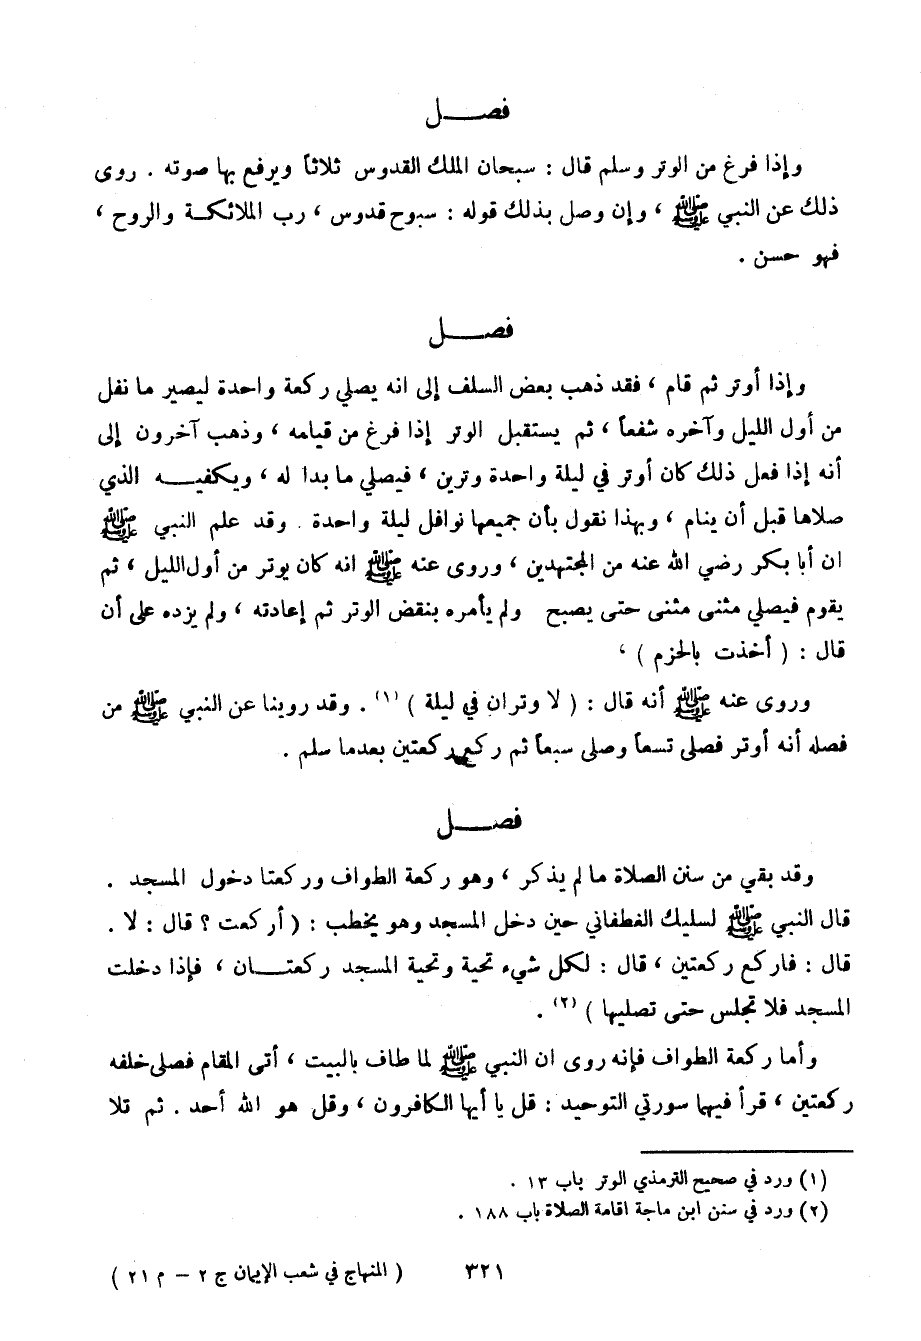 فصل
وإذا فرغ من الوتر وسلم قال : سبحان الملك القدوس ثلاثاً ويرفع بها صوته . روى
ذلك عن النبي ﷺ ، وإن وصل بذلك قوله : سبوح قدوس ، رب الملائكة والروح ،
فهو حسن .
فصل
وإذا أوتر ثم قام ، فقد ذهب بعض السلف إلى انه يصلي ركعة واحدة ليصير ما نفل
من أول الليل وآخره شفعاً ، ثم يستقبل الوتر إذا فرغ من قيامه ، وذهب آخرون إلى
أنه إذا فعل ذلك كان أوتر في ليلة واحدة وترين ، فيصلي ما بدا له ، ويكفيه الذي
صلاها قبل أن ينام ، وبهذا نقول بأن جميعها نوافل ليلة واحدة . وقد علم النبي ﷺ
ان أبا بكر رضي الله عنه من المجتهدين ، وروى عنه ﷺ انه كان يوتر من أول الليل ، ثم
يقوم فيصلي مثنى مثنى حتى يصبح ولم يأمره بنقض الوتر ثم إعادته ، ولم يزده على أن
قال : ( أخذت بالحزم ) ،
وروى عنه ﷺ أنه قال : ( لا وتران في ليلة ) (١) . وقد روينا عن النبي ﷺ من
فصله أنه أوتر فصلى تسعاً وصلى سبعاً ثم ركع ركعتين بعدما سلم .
فصل
وقد بقي من سنن الصلاة ما لم يذكر ، وهو ركعة الطواف وركعتا دخول المسجد .
قال النبي ﷺ لسليك الغطفاني حين دخل المسجد وهو يخطب : ( أركعت ؟ قال : لا .
قال : فاركع ركعتين ، قال : لكل شيء تحية وتحية المسجد ركعتان ، فإذا دخلت
المسجد فلا تجلس حتى تصليها ) (٢) .
وأما ركعة الطواف فإنه روى ان النبي ﷺ لما طاف بالبيت ، أتى المقام فصلى خلفه
ركعتين ، قرأ فيهما سورتي التوحيد : قل يا أيها الكافرون ، وقل هو الله أحد . ثم تلا
(١) ورد في صحيح الترمذي الوتر باب ١٣ .
(٢) ورد في سنن ابن ماجة اقامة الصلاة باب ١٨٨ .
٣٢١
( المنهاج في شعب الإيمان ج ٢ – م ٢١ )